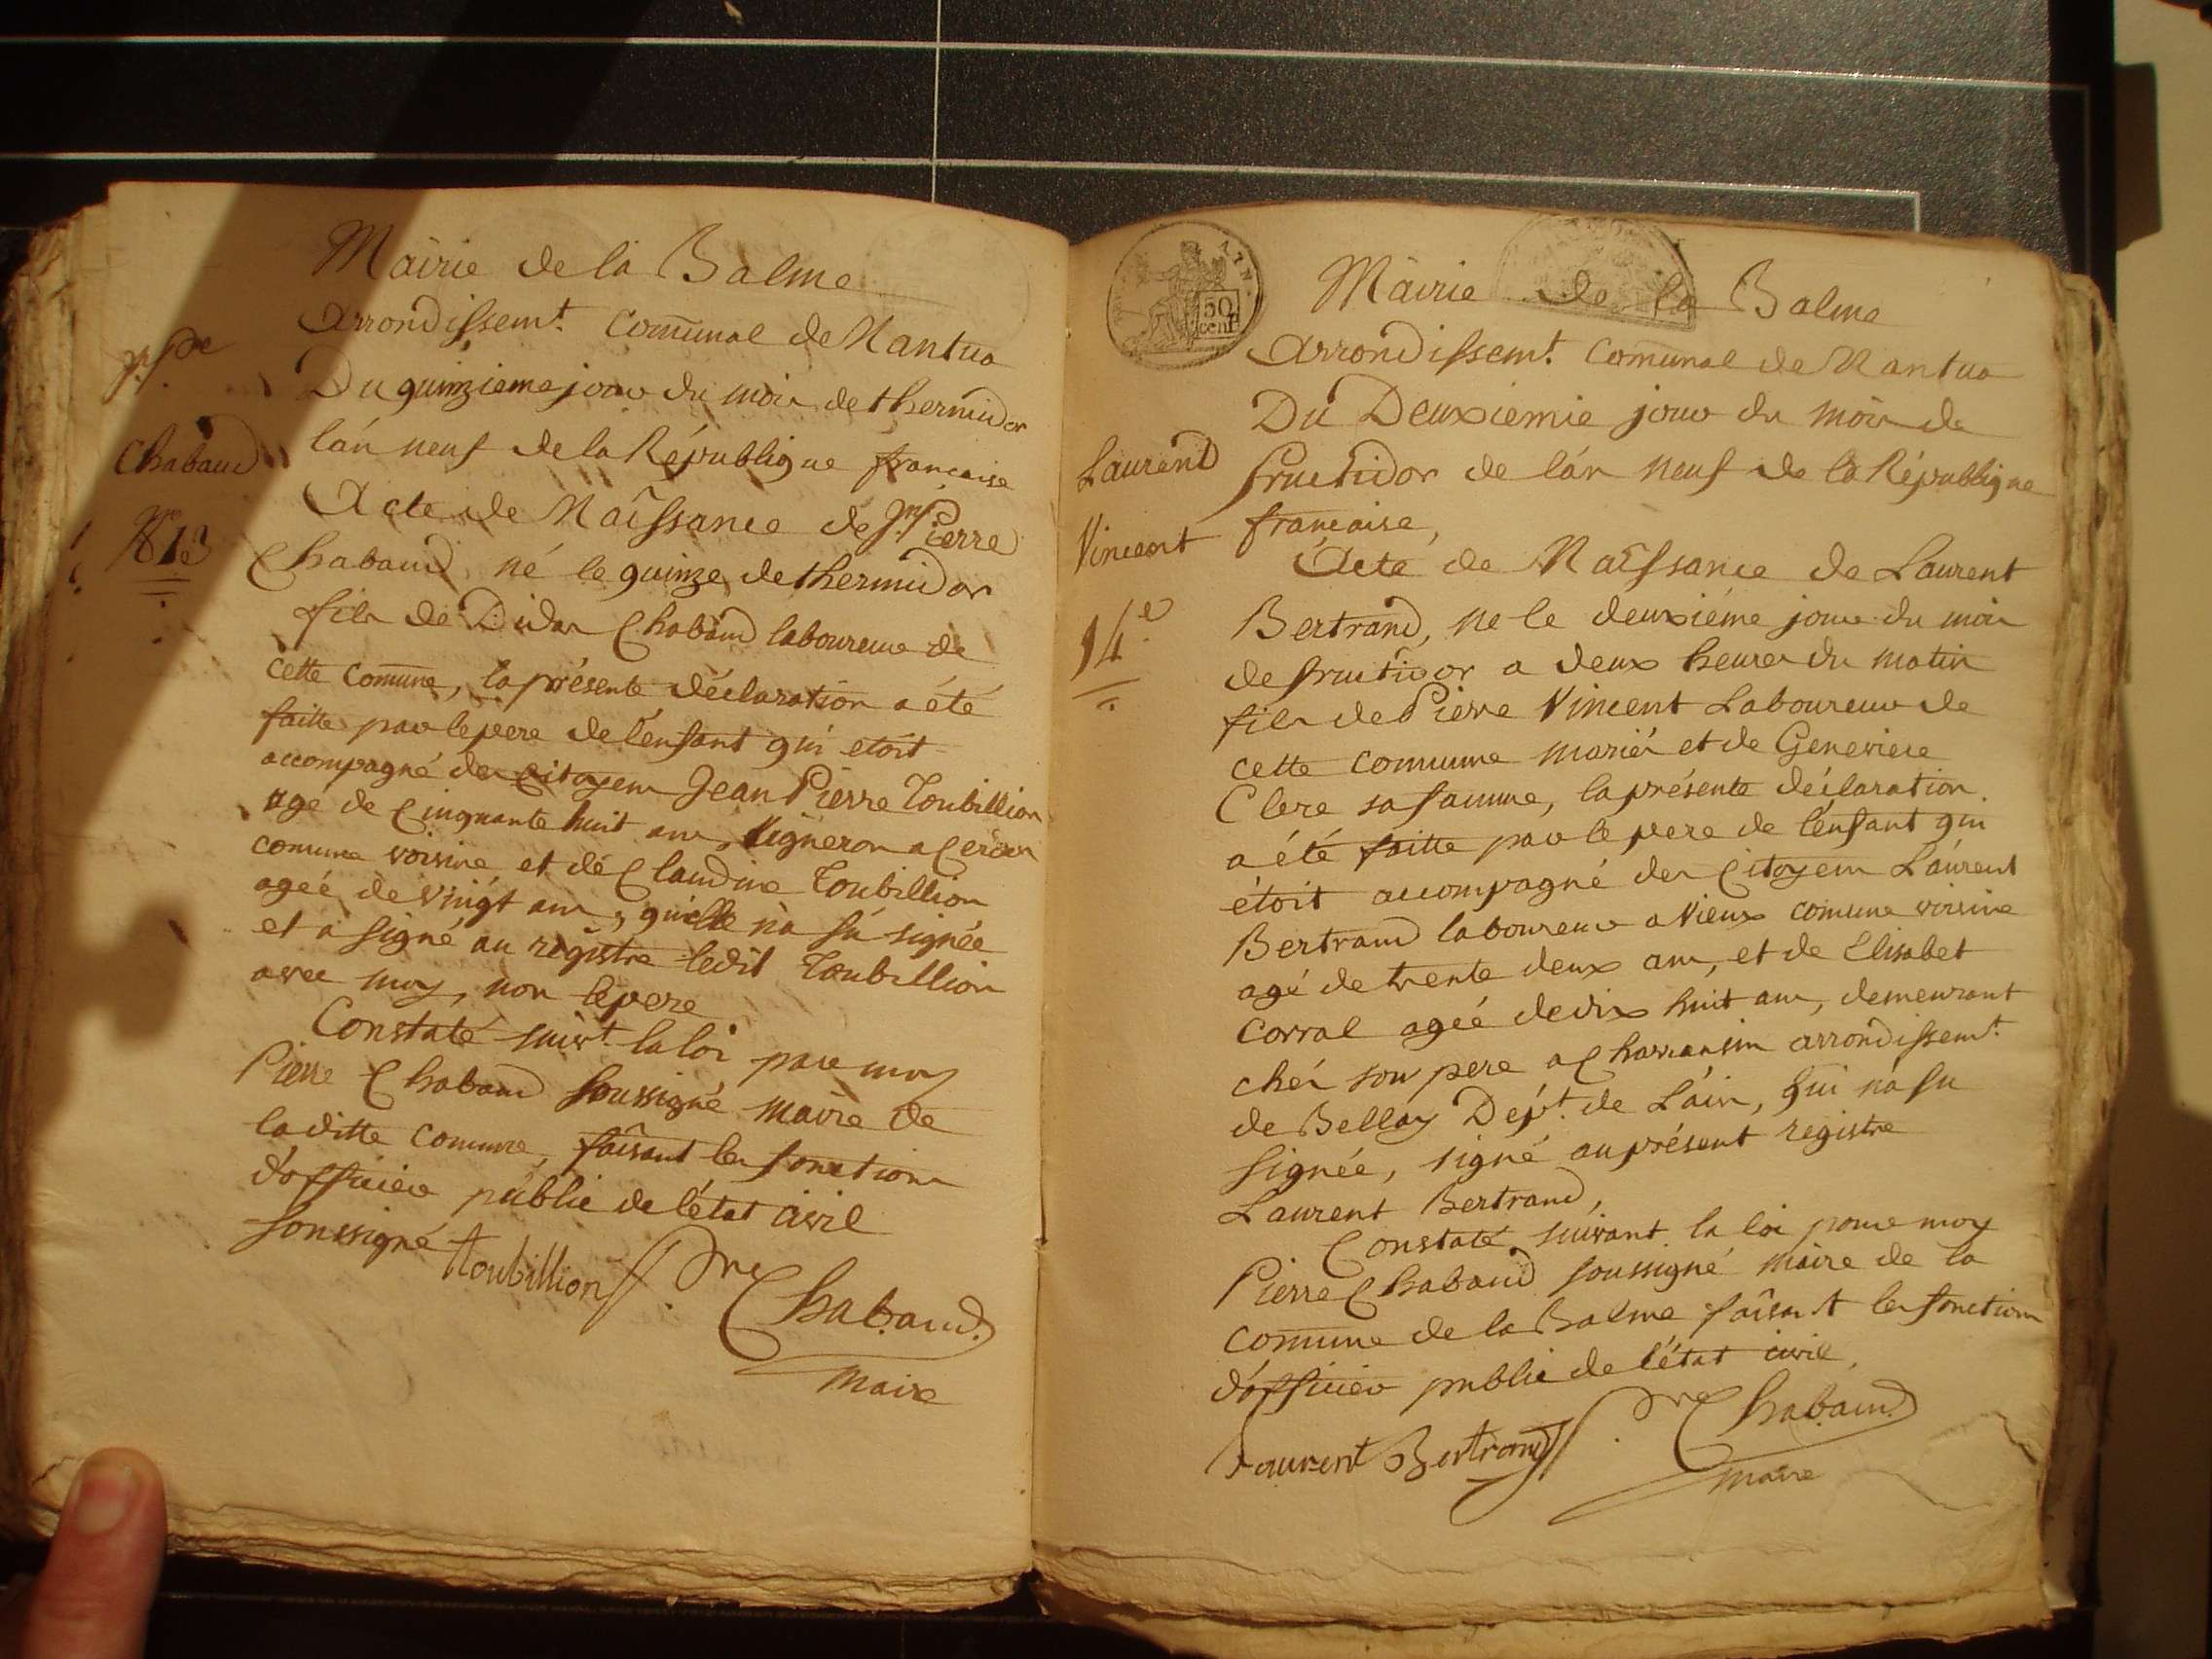 Mairie de la Balme
Arrondissemt. Comunal de Nantua
Du quinzieme jour du mois de thermidor
l'an neuf de la République française
Chabaud
13
Acte de Naissance de Jn. Pierre
Chabaud, né le quinze de thermidor
fils de Didier Chabaud laboureur de
cette comune, la présente déclaration a été
faitte par le pere de l'enfant qui etoit
accompagné des citoyens Jean Pierre Toubillion
agé de Cinquante huit ans, Vigneron a Cerdon
comune voisine et de Claudine Toubillion
ageé de vingt ans, qui elle n'a sû signée
et a signé au registre ledit Toubillion
avec moy, non le pere
Constaté suivt. la loi par moy
Pierre Chabaud soussigné maire de
la ditte comune, faisant les fonctions
d'officier public de l'état civil
soussigné
Toubillion Pre Chabaud
Maire
50 cent
Mairie de la Balme
Arrondissemt. Comunal de Nantua
Du Deuxiemie jour du mois de
fructidor de l'an neuf de la République
française,
Laurend
Vincent
14e
Acte de Naissance de Laurent
Bertrand, né le deuxiéme jour du mois
de fructidor a deux heures du matin
fils de Pierre Vincent Laboureur de
cette commune mariés et de Genevieve
Clere sa famme, la présente déclaration
a été faitte par le pere de l'enfant qui
étoit accompagné des Citoyens Laurent
Bertrand laboureur a Vieux comune voisine
agé de trente deux ans, et de Elisabet
Corral ageé de dix huit ans, demeurant
chés son pere a Chavansin arrondissemt.
de Belley Dept. de L'ain, qui n'a su
signée, signé au présent registre
Laurent Bertrand,
Constaté suivant la loi par moy
Pierre Chabaud soussigné maire de la
comune de la Balme faisant les fonctions
d'officier public de l'état civil,
Laurent Bertrand Pre Chabaud
maire